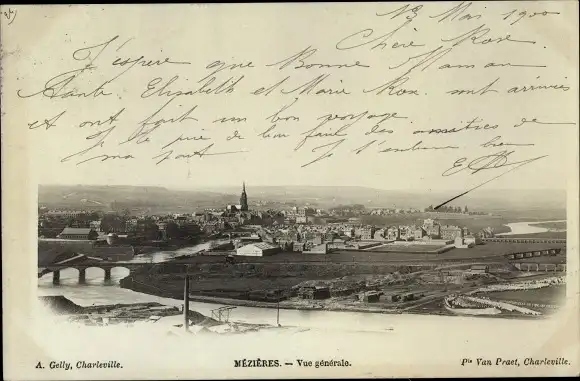 Mai 1900
Chère Rose
J'espère que Bonne Maman
Tante Elisabeth et Marie Rose sont arrivées
et ont fait un bon voyage
Je te prie de bien faire des amitiés de
ma part. Je t'embrasse bien
MÉZIÈRES. — Vue générale.
A. Gelly, Charleville.
Pᵗᵉ Van Praet, Charleville.